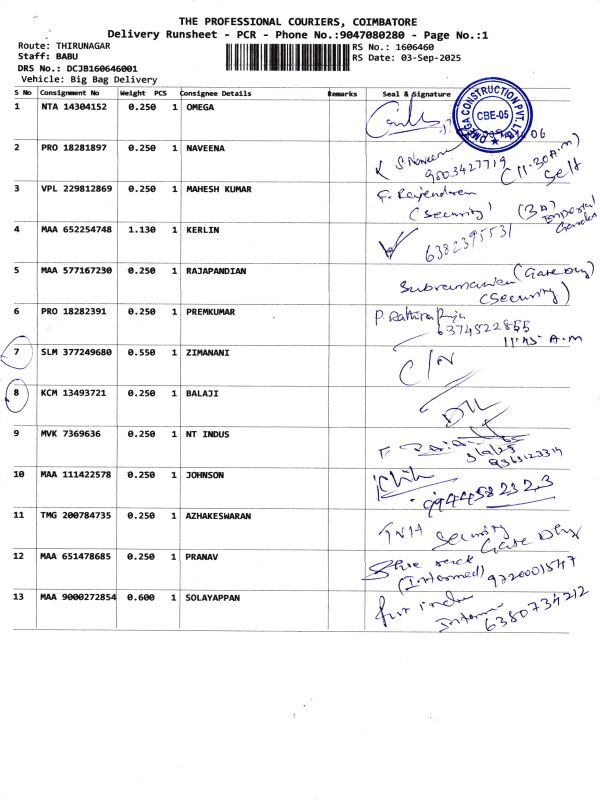 THE PROFESSIONAL COURIERS, COIMBATORE
Delivery Runsheet - PCR - Phone No.:9047080280 - Page No.:1
Route: THIRUNAGAR
RS No.: 1606460
Staff: BABU
RS Date: 03-Sep-2025
DRS No.: DCJB160646001
Vehicle: Big Bag Delivery
S No Consignment No Weight PCS Consignee Details Remarks Seal & Signature
1 NTA 14304152 0.250 1 OMEGA
OMEGA CONSTRUCTION PVT. LTD.
CBE-05
2 PRO 18281897 0.250 1 NAVEENA
S. Naveena
9003427719 (11.30 A.m)
Self
3 VPL 229812869 0.250 1 MAHESH KUMAR
(Security) (3A)
Imperial Garden
4 MAA 652254748 1.130 1 KERLIN
6382395531
5 MAA 577167230 0.250 1 RAJAPANDIAN
Subramanian (Gate
(Security)
6 PRO 18282391 0.250 1 PREMKUMAR
6374522855
11:45 A.m
7 SLM 377249680 0.550 1 ZIMANANI
C/N
8 KCM 13493721 0.250 1 BALAJI
9 MVK 7369636 0.250 1 NT INDUS
10 MAA 111422578 0.250 1 JOHNSON
9444582323
11 TMG 200784735 0.250 1 AZHAKESWARAN
Security
Gate
12 MAA 651478685 0.250 1 PRANAV
(Informed)
13 MAA 9000272854 0.600 1 SOLAYAPPAN
6380734212